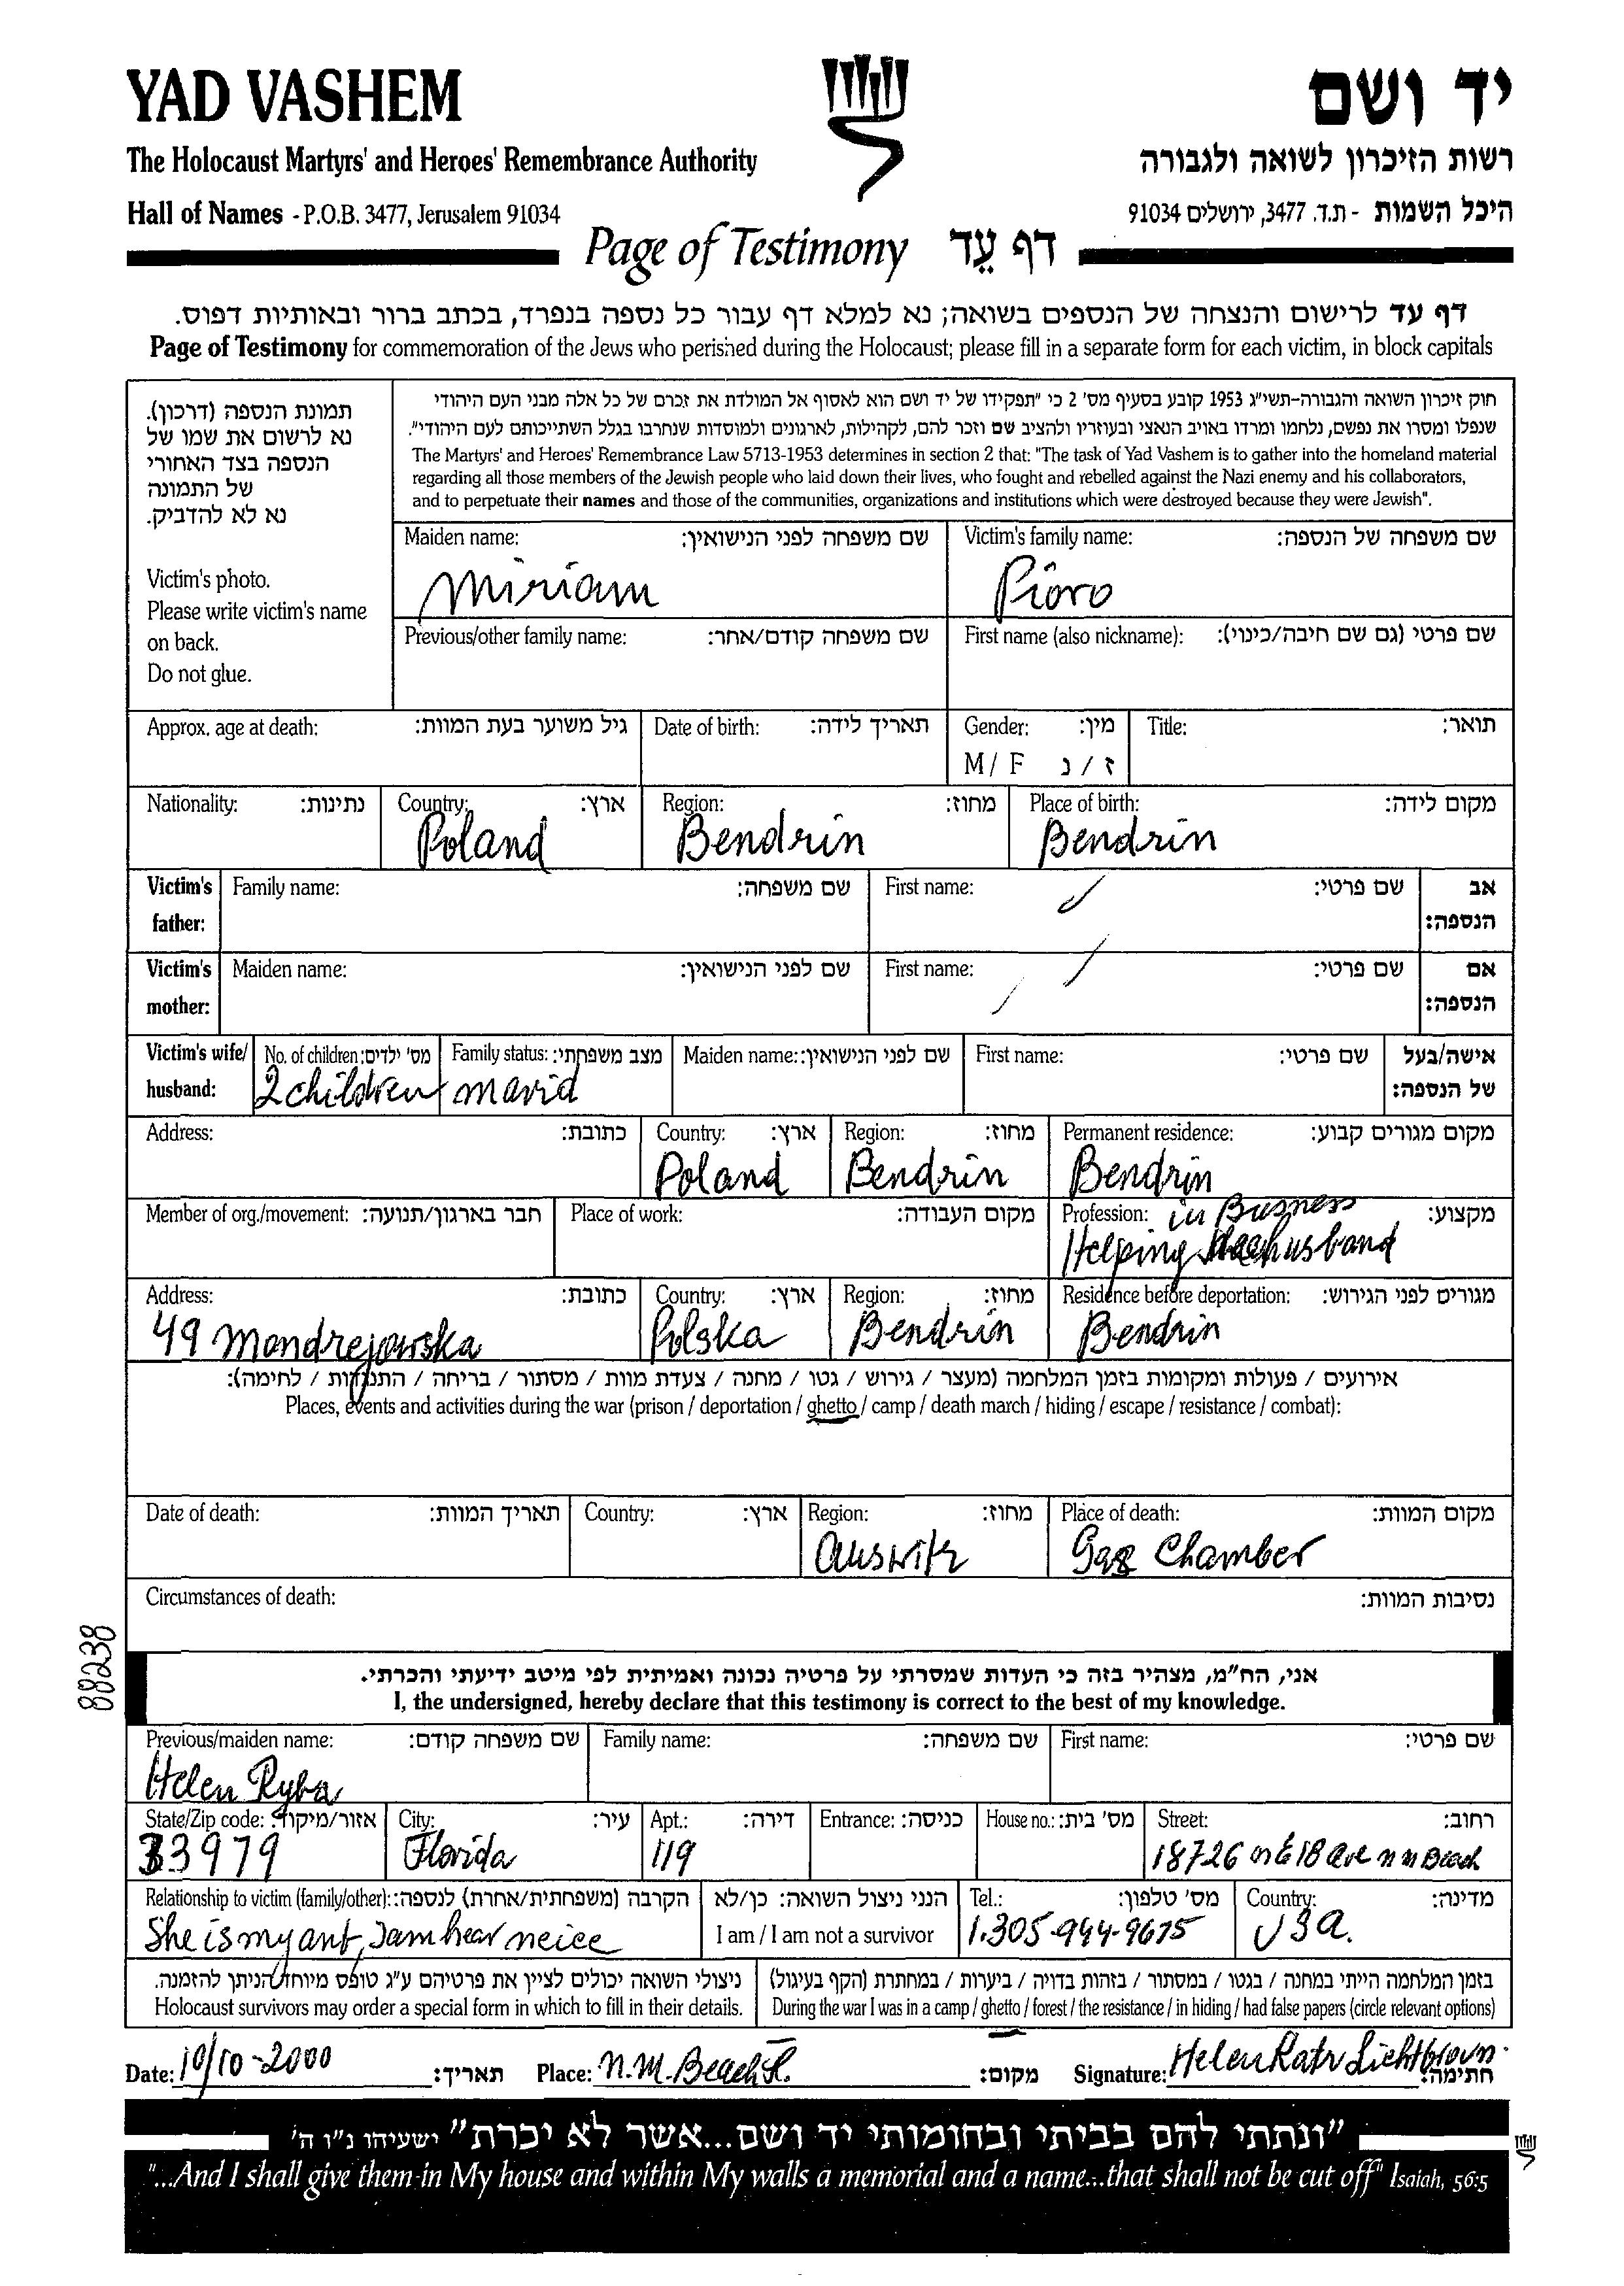 YAD VASHEM
יד ושם
The Holocaust Martyrs' and Heroes' Remembrance Authority
רשות הזיכרון לשואה ולגבורה
Hall of Names - P.O.B. 3477, Jerusalem 91034
היכל השמות - ת.ד. 3477, ירושלים 91034
Page of Testimony דף עֵד
דף עד לרישום והנצחה של הנספים בשואה; נא למלא דף עבור כל נספה בנפרד, בכתב ברור ובאותיות דפוס.
Page of Testimony for commemoration of the Jews who perished during the Holocaust; please fill in a separate form for each victim, in block capitals
תמונת הנספה (דרכון).
נא לרשום את שמו של
הנספה בצד האחורי
של התמונה
נא לא להדביק.
Victim's photo.
Please write victim's name
on back.
Do not glue.
חוק זיכרון השואה והגבורה-תשי"ג 1953 קובע בסעיף מס' 2 כי "תפקידו של יד ושם הוא לאסוף אל המולדת את זכרם של כל אלה מבני העם היהודי
שנפלו ומסרו את נפשם, נלחמו ומרדו באויב הנאצי ובעוזריו ולהציב שם וזכר להם, לקהילות, לארגונים ולמוסדות שנחרבו בגלל השתייכותם לעם היהודי".
The Martyrs' and Heroes' Remembrance Law 5713-1953 determines in section 2 that: "The task of Yad Vashem is to gather into the homeland material
regarding all those members of the Jewish people who laid down their lives, who fought and rebelled against the Nazi enemy and his collaborators,
and to perpetuate their names and those of the communities, organizations and institutions which were destroyed because they were Jewish".
Maiden name: שם משפחה לפני הנישואין: Victim's family name: שם משפחה של הנספה:
Miriam Pioro
Previous/other family name: שם משפחה קודם/אחר: First name (also nickname): שם פרטי (גם שם חיבה/כינוי):
Approx. age at death: גיל משוער בעת המוות: Date of birth: תאריך לידה: Gender: מין: Title: תואר:
M / F ז / נ
Nationality: נתינות: Country: ארץ: Region: מחוז: Place of birth: מקום לידה:
Poland Bendrin Bendrin
Victim's father: Family name: שם משפחה: First name: שם פרטי: אב הנספה:
Victim's mother: Maiden name: שם לפני הנישואין: First name: שם פרטי: אם הנספה:
Victim's wife/ husband: No. of children: מס' ילדים: Family status: מצב משפחתי: Maiden name: שם לפני הנישואין: First name: שם פרטי: אישה/בעל של הנספה:
2 children marid
Address: כתובת: Country: ארץ: Region: מחוז: Permanent residence: מקום מגורים קבוע:
Poland Bendrin Bendrin
Member of org./movement: חבר בארגון/תנועה: Place of work: מקום העבודה: Profession: מקצוע:
in Busness
Helping husband
Address: כתובת: Country: ארץ: Region: מחוז: Residence before deportation: מגורים לפני הגירוש:
49 Mondrejowska Polska Bendrin Bendrin
אירועים / פעולות ומקומות בזמן המלחמה (מעצר / גירוש / גטו / מחנה / צעדת מוות / מסתור / בריחה / התנגדות / לחימה):
Places, events and activities during the war (prison / deportation / ghetto / camp / death march / hiding / escape / resistance / combat):
Date of death: תאריך המוות: Country: ארץ: Region: מחוז: Place of death: מקום המוות:
Auswitz Gas Chamber
Circumstances of death: נסיבות המוות:
88238
אני, הח"מ, מצהיר בזה כי העדות שמסרתי על פרטיה נכונה ואמיתית לפי מיטב ידיעתי והכרתי.
I, the undersigned, hereby declare that this testimony is correct to the best of my knowledge.
Previous/maiden name: שם משפחה קודם: Family name: שם משפחה: First name: שם פרטי:
Helen Ryba
State/Zip code: אזור/מיקוד: City: עיר: Apt.: דירה: Entrance: כניסה: House no.: מס' בית: Street: רחוב:
33979 Florida 119 18726 n E 18 ave n M Beach
Relationship to victim (family/other): הקרבה (משפחתית/אחרת) לנספה: הנני ניצול השואה: כן/לא Tel.: מס' טלפון: Country: מדינה:
She is my ant, I am hear neice I am / I am not a survivor 1.305-944-9675 USA.
ניצולי השואה יכולים לציין את פרטיהם ע"ג טופס מיוחד הניתן להזמנה. בזמן המלחמה הייתי במחנה / בגטו / במסתור / בזהות בדויה / ביערות / במחתרת (הקף בעיגול)
Holocaust survivors may order a special form in which to fill in their details. During the war I was in a camp / ghetto / forest / the resistance / in hiding / had false papers (circle relevant options)
Date: 10/10-2000 תאריך: Place: N.M. Beach Fl. מקום: Signature: Helen Katz Lichtbroun חתימה:
"ונתתי להם בביתי ובחומותי יד ושם...אשר לא יכרת" ישעיהו נ"ו ה'
"...And I shall give them in My house and within My walls a memorial and a name...that shall not be cut off" Isaiah, 56:5